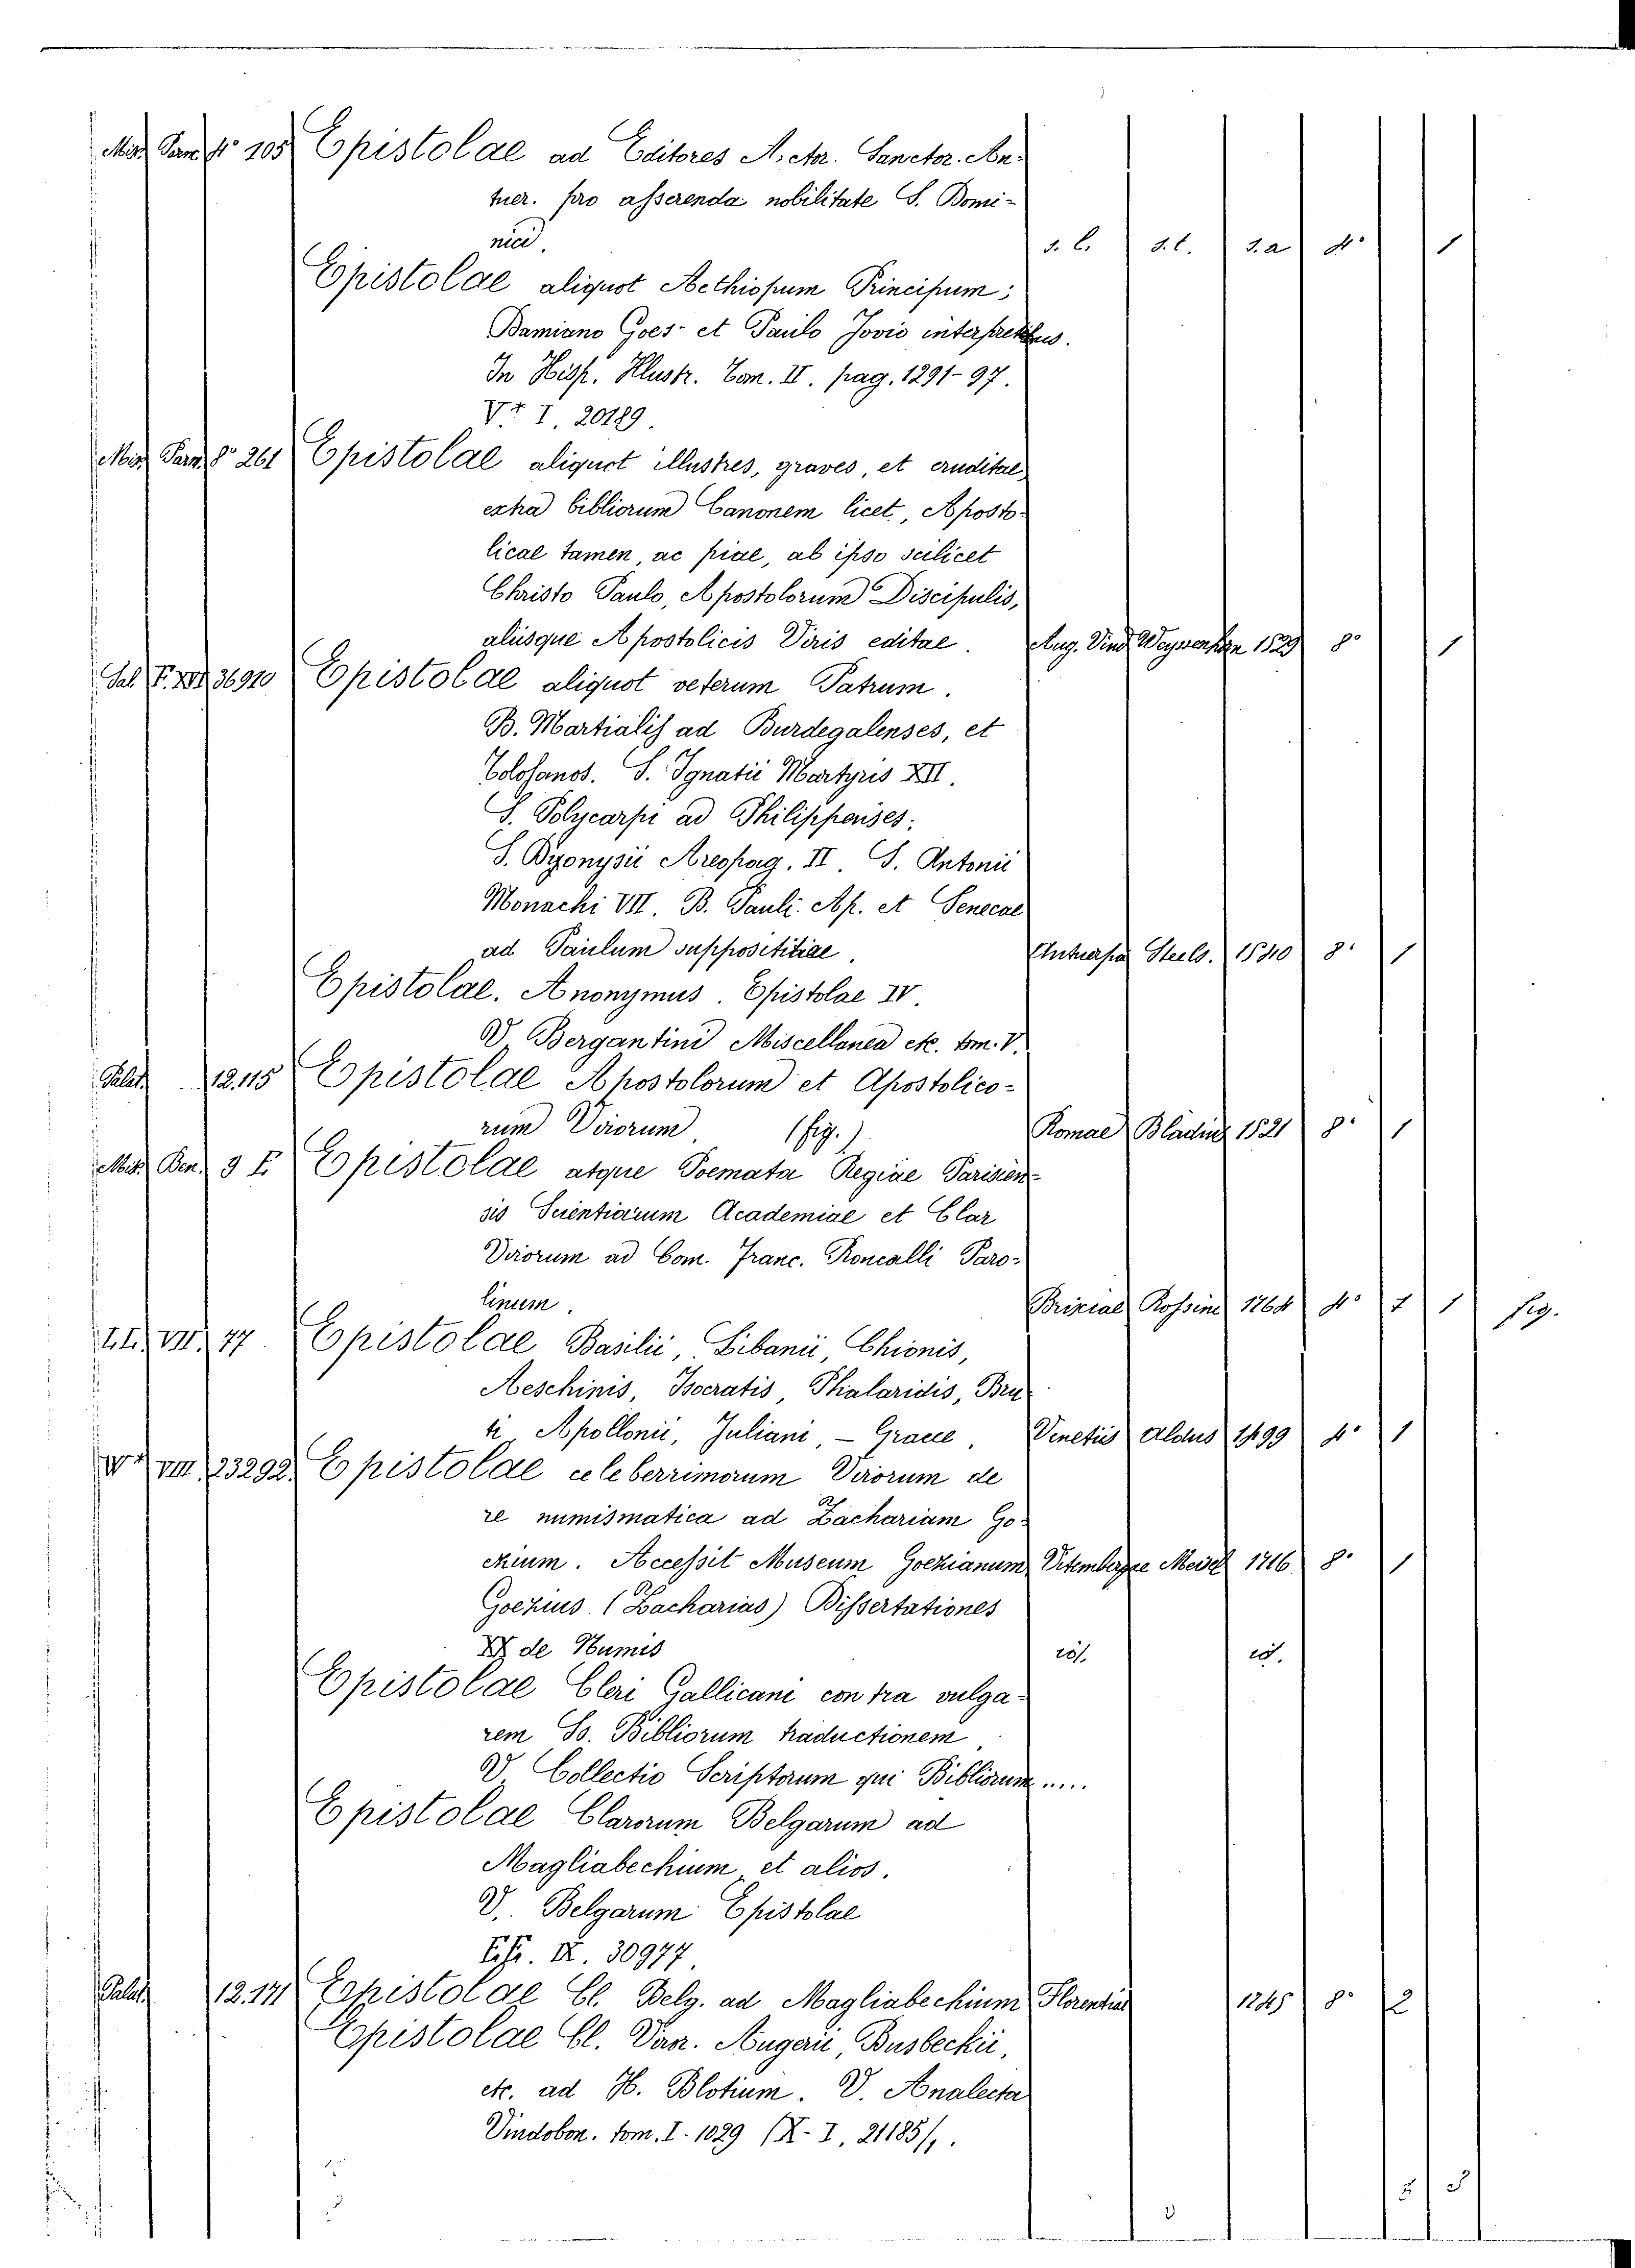 Misc. Parm. 4° 105 Epistolae ad Editores Actor. Sanctor. An-
tuer. pro asserenda nobilitate S. Domi-
nici. s. l. s. t. s. a 4° 1
Epistolae aliquot Aethiopum Principum;
Damiano Goes et Paulo Jovio interpretibus.
In Hisp. Illustr. Tom. II. pag. 1291-97.
V* I. 20189.
Misc. Parm. 8° 261 Epistolae aliquot illustres, graves, et eruditae,
extra bibliorum Canonem licet, Aposto-
licae tamen, ac piae, ab ipso scilicet
Christo Paulo, Apostolorum Discipulis,
aliisque Apostolicis Viris editae. Aug. Vind. 1529 8° 1
Sal F. XVI 36910 Epistolae aliquot veterum Patrum.
B. Martialis ad Burdegalenses, et
Tolosanos. S. Ignatii Martyris XII.
S. Polycarpi ad Philippenses;
S. Dyonysii Areopag. II. S. Antonii
Monachi VII. B. Pauli Ap. et Senecae
ad Paulum supposititiae. Antuerpiae Steels. 1540 8° 1
Epistolae. Anonymus. Epistolae IV.
V. Bergantini Miscellanea etc. tom. V.
Palat. 12.115 Epistolae Apostolorum et Apostolico-
rum Virorum (fig.) Romae Bladius 1521 8° 1
Misc. Ben. 3 Epistolae atque Poemata Regiae Parisien-
sis Scientiarum Academiae et Clar
Virorum ad Com. Franc. Roncalli Paro-
linum. Brixiae Rossini 1764 4° 1 1 fig.
VII. 77 Epistolae Basilii, Libanii, Chionis,
Aeschinis, Isocratis, Phalaridis, Bru
ti, Apollonii, Juliani, - Graece, Venetiis Aldus 1499 4° 1
VIII 23292. Epistolae celeberrimorum Virorum de
re numismatica ad Zachariam Go-
ezium. Accessit Museum Goezianum Vitembergae Meisel 1716 8° 1
Goezius (Zacharias) Dissertationes
XX de Numis id. id.
Epistolae Cleri Gallicani contra vulga-
rem Ss. Bibliorum traductionem
V. Collectio Scriptorum qui Bibliorum....
Epistolae Clarorum Belgarum ad
Magliabechium et alios.
V. Belgarum Epistolae
IX. 30977
Palat. 12.171 Epistolae Cl. Belg. ad Magliabechium Florentiae 1745 8° 2
Epistolae Cl. Var. Augerii, Busbeckii,
etc. ad H. Blotium. V. Analecta
Vindobon. tom. I. 1029 (X. I. 21185).